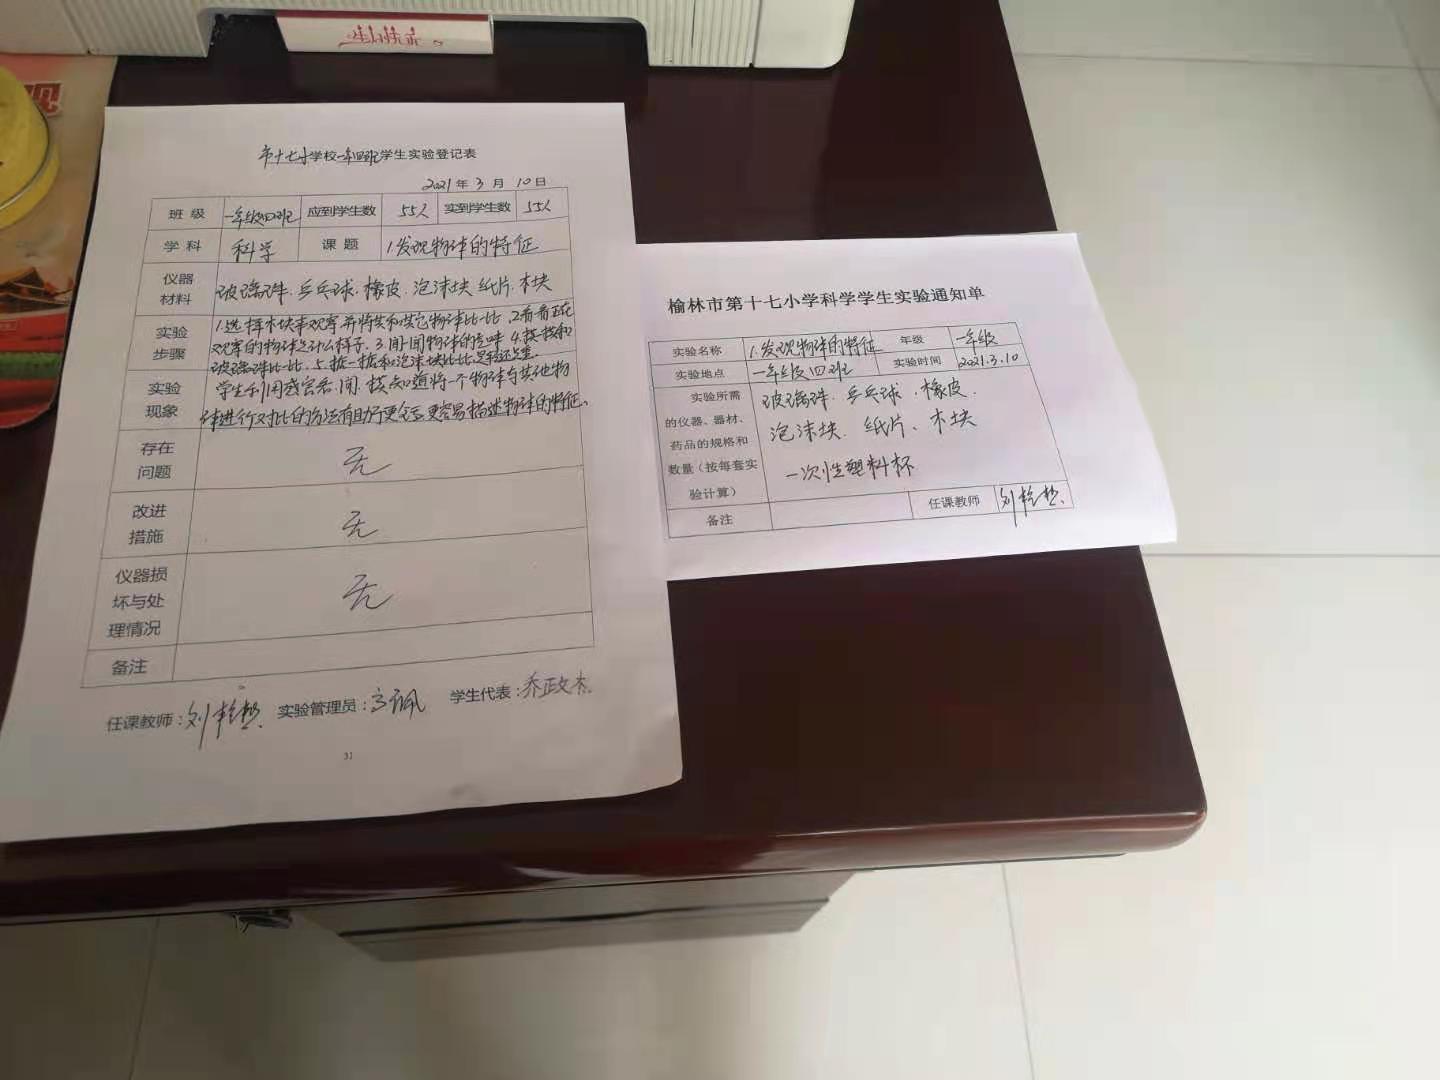 市十七小学校一年四班学生实验登记表
2021年3月10日
班级 一年级四班 应到学生数 55人 实到学生数 55人
学科 科学 课题 1发现物体的特征
仪器材料 玻璃珠、乒乓球、橡皮、泡沫块、纸片、木块
实验步骤 1.选择木块来观察并将其和其它物体比一比、2.看看正在
观察的物体是什么样子、3.闻一闻物体的气味 4.摸一摸和
玻璃珠比一比、5.掂一掂和泡沫块比比是轻还是重。
实验现象 学生利用感官看、闻、摸知道将一个物体与其他物
体进行对比的方法有助于更全、更容易描述物体的特征。
存在问题 无
改进措施 无
仪器损坏与处理情况 无
备注
任课教师: 实验管理员: 学生代表:乔政杰
31
榆林市第十七小学科学学生实验通知单
实验名称 1.发现物体的特征 年级 一年级
实验地点 一年级四班 实验时间 2021.3.10
实验所需
的仪器、器材、
药品的规格和
数量(按每套实
验计算)
玻璃珠、乒乓球、橡皮、
泡沫块、纸片、木块
一次性塑料杯
备注 任课教师